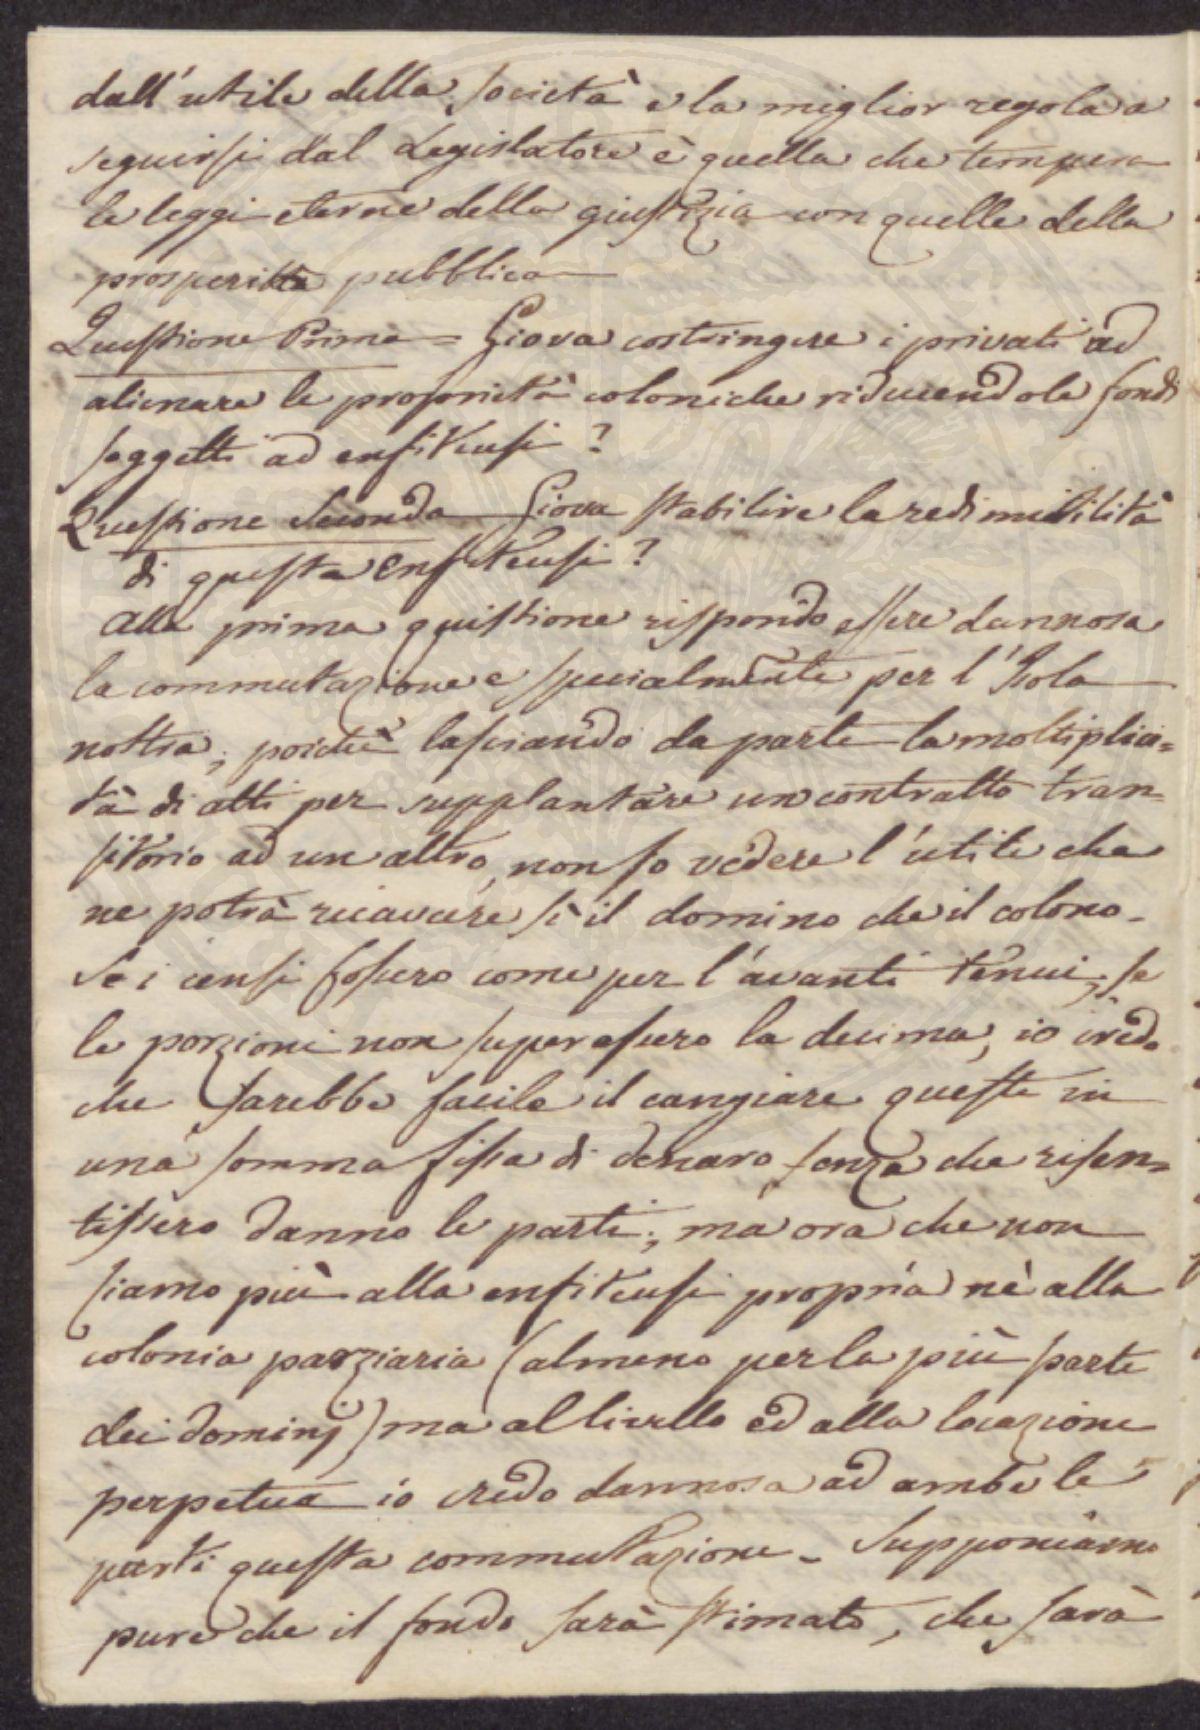 dall'utile della Società e la miglior regola a
seguirsi dal Legislatore è quella che tempera
le leggi eterne della giustizia con quelle della
prosperità pubblica
Questione Prima = Giova costringere i privati ad
alienare le proprietà coloniche riducendole fondi
soggetti ad enfiteusi?
Questione Seconda Giova stabilire la redimibilità
di questa enfiteusi?
Alla prima quistione rispondo essere dannosa
la commutazione e specialmente per l'Isola
nostra; poichè lasciando da parte la moltiplici=
tà di atti per supplantare un contratto tran=
sitorio ad un altro, non so vedere l'utile che
ne potrà ricavare sì il domino che il colono.
Se i censi fossero come per l'avanti tenui, se
le porzioni non superassero la decima, io credo
che sarebbe facile il cangiare queste in
una somma fissa di denaro senza che risen=
tissero danno le parti; ma ora che non
siamo più alla enfiteusi propria nè alla
colonia parziaria (almeno per la più parte
dei dominj) ma al livello ed alla locazione
perpetua io credo dannosa ad ambe le
parti questa commutazione. Supponiamo
pure che il fondo sarà stimato, che sarà